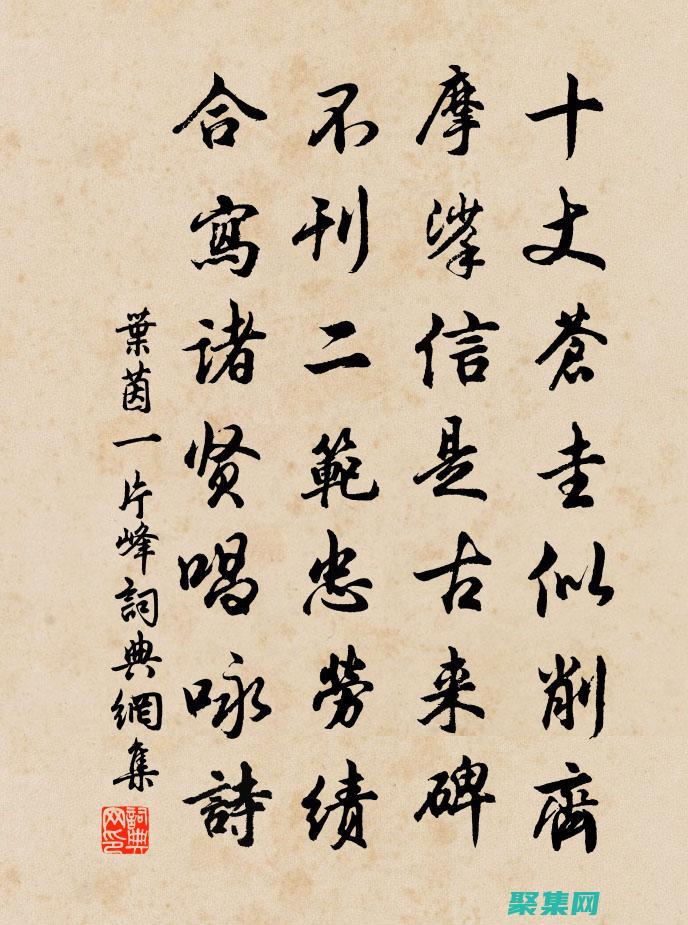 十丈蒼圭似削齊
摩挲信是古来碑
不刊二範忠勞績
合寫諸贤唱咏詩
葉茵一片峰詞典網集
詞典网印
聚集网